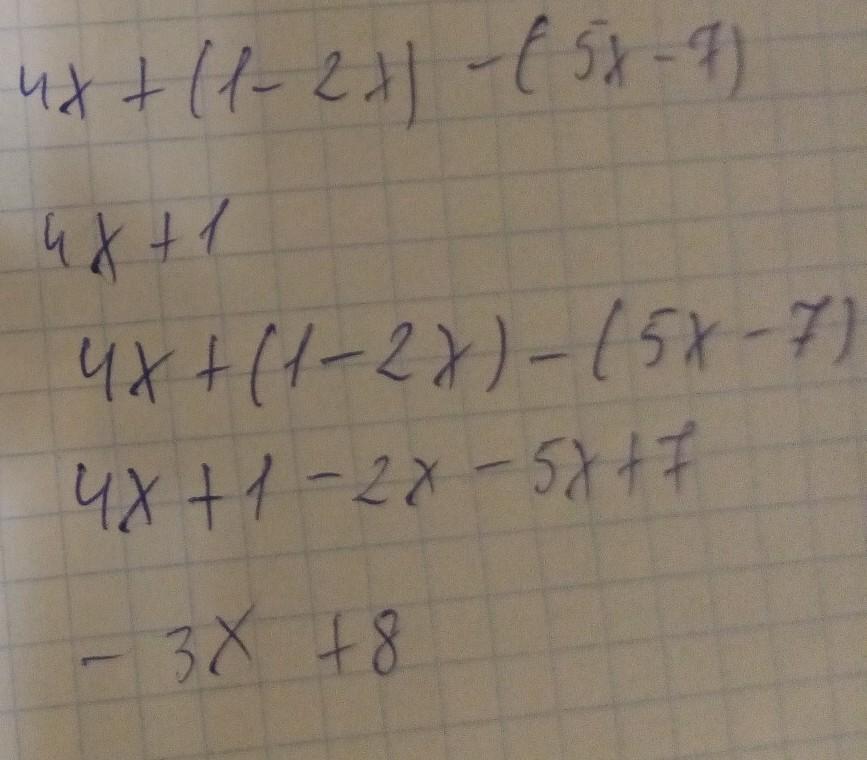 4x + (1 - 2x) - (5x - 7)
4x + 1
4x + (1 - 2x) - (5x - 7)
4x + 1 - 2x - 5x + 7
- 3x + 8